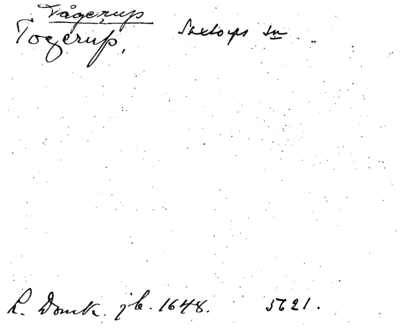 Tågerup
Togerup, Saxtorps sn
L. Domk. jb. 1648. 5621.